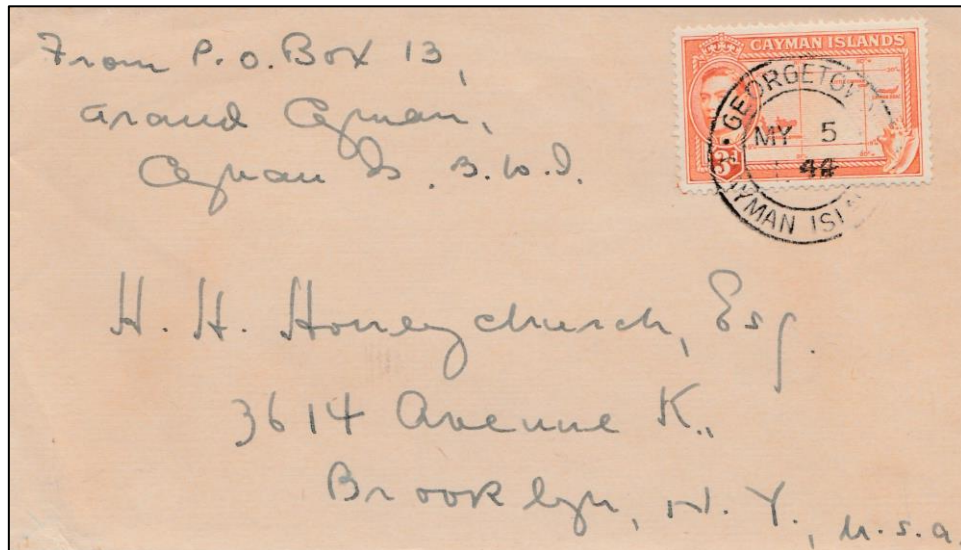 From P.O. Box 13,
Grand Cayman,
Cayman Is. B.W.I.
CAYMAN ISLANDS
3d
GEORGETO
MY 5
44
YMAN ISLA
H. H. Honeychurch, Esq.
3614 Avenue K.,
Brooklyn, N. Y., U.S.A.